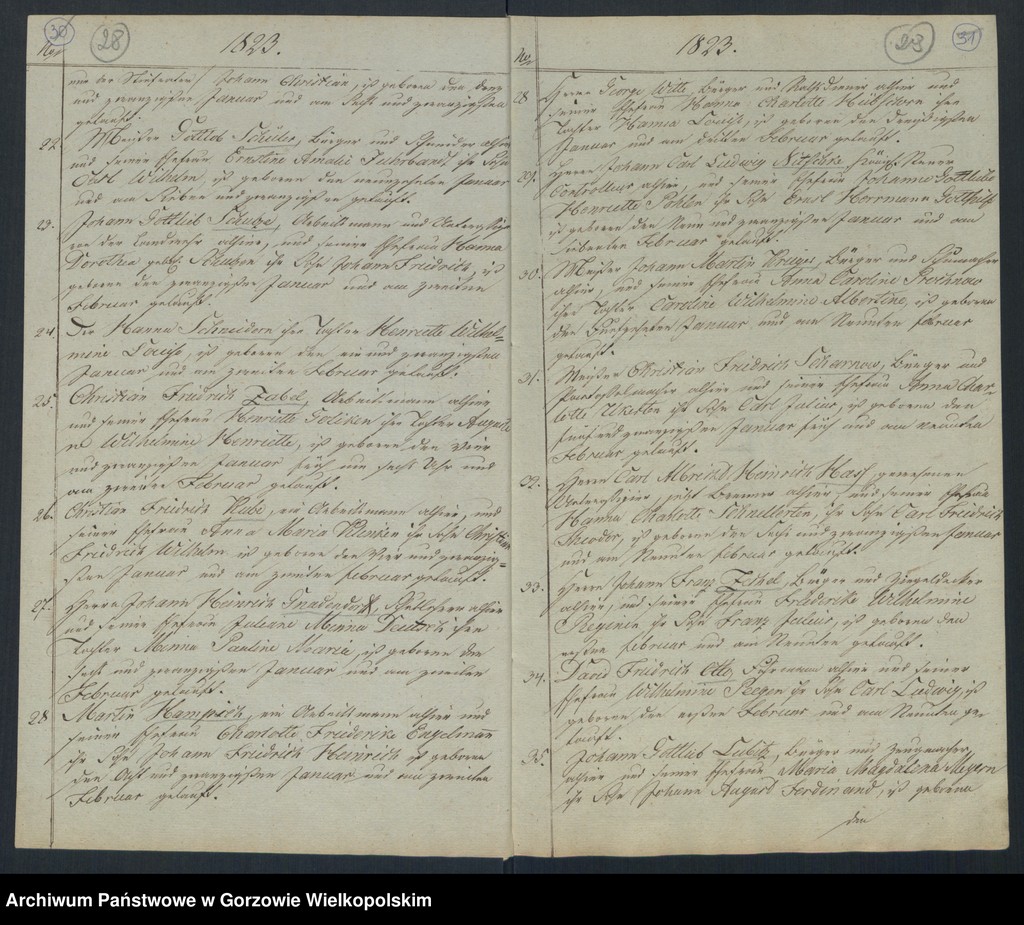 30
28
1823.
No
Johann Christian, ist geboren den
und zwanzigsten Januar und am Sechs und zwanzigsten
getauft.
22. Meister Gottlob Schulz, Bürger und
und seiner Ehefrau Ernstine Amalie Fuhrbandt, ihr Sohn
Carl Wilhelm, ist geboren den neunzehnten Januar
und am Sieben und zwanzigsten getauft.
23. Johann Gottlieb Schube, Arbeitsmann und
der Landwehr allhier, und seiner Ehefrau Hanna
Dorothea geb. ihr Sohn Johann Friedrich, ist
geboren den zwanzigsten Januar und am zweiten
Februar getauft.
24. Der Hanna Schneidern ihre Tochter Henriette Wilhel-
mine Louise, ist geboren den ein und zwanzigsten
Januar und am zweiten Februar getauft.
25. Christian Friedrich Zabel, Arbeitsmann allhier
und seiner Ehefrau Henriette ihre Tochter Auguste
Wilhelmine Henriette, ist geboren den Vier
und zwanzigsten Januar früh um sechs Uhr und
am zweiten Februar getauft.
26. Christian Friedrich Rabe, ein Arbeitsmann allhier, und
seiner Ehefrau Anna Maria ihr Sohn Christian
Friedrich Wilhelm ist geboren den Vier und zwanzig-
sten Januar und am zweiten Februar getauft.
27. Herrn Johann Heinrich Gnadendorff, allhier
und seiner Ehefrau Juliane Minna Deutsch ihre
Tochter Minna Pauline Maria, ist geboren den
sechs und zwanzigsten Januar und am zweiten
Februar getauft.
28. Martin Hamprich, ein Arbeitsmann allhier und
seiner Ehefrau Charlotte Friederike Engelman
ihr Sohn Johann Friedrich Heinrich ist geboren
den Acht und zwanzigsten Januar und am zweiten
Februar getauft.
23
31
1823.
No
28 Herrn George Witte, Bürger und Rathsdiener allhier und
seiner Ehefrau Hanna Charlotte ihre
Tochter Hanna Louise, ist geboren den dreyßigsten
Januar und am dritten Februar getauft.
29. Herrn Johann Carl Ludwig Nitschke, Königl. Steuer
Controlleur allhier, und seiner Ehefrau Johanna Gottliebe
Henriette ihr Sohn Ernst Herrmann Gotthilf
ist geboren den Neun und zwanzigsten Januar und am
siebenten Februar getauft.
30. Meister Johann Martin Krüger, Bürger und Schumacher
allhier, und seiner Ehefrau Anna Caroline Prochnow
ihre Tochter Caroline Wilhelmine Albertine, ist geboren
den Funfzehnten Januar und am Neunten Februar
getauft.
31. Meister Christian Friedrich Scharnow, Bürger und
Pantoffelmacher allhier und seiner Ehefrau Anna Char-
lotte ihr Sohn Carl Julius, ist geboren den
fünf und zwanzigsten Januar früh und am neunten
Februar getauft.
32. Herrn Carl Albrecht Heinrich Hass, gewesenen
Unteroffizier, jetzt allhier und seiner Ehefrau
Hanna Charlotte ihr Sohn Carl Friedrich
Theodor, ist geboren den Sechs und zwanzigsten Januar
und am Neunten Februar getauft.
33. Herrn Johann Franz Zechel, Bürger und Ziegeldecker
allhier, und seiner Ehefrau Friederike Wilhelmine
ihr Sohn Franz Julius, ist geboren den
ersten Februar und am Neunten getauft.
34. David Friedrich Otto Fuhrmann allhier und seiner
Ehefrau Wilhelmine ihr Sohn Carl Ludwig, ist
geboren den ersten Februar und am Neunten ge-
tauft.
35. Johann Gottlieb Bürger und Zeugmacher
allhier und seiner Ehefrau Maria Magdalena Meyern
ihr Sohn Johann August Ferdinand, ist geboren
den
Archiwum Państwowe w Gorzowie Wielkopolskim